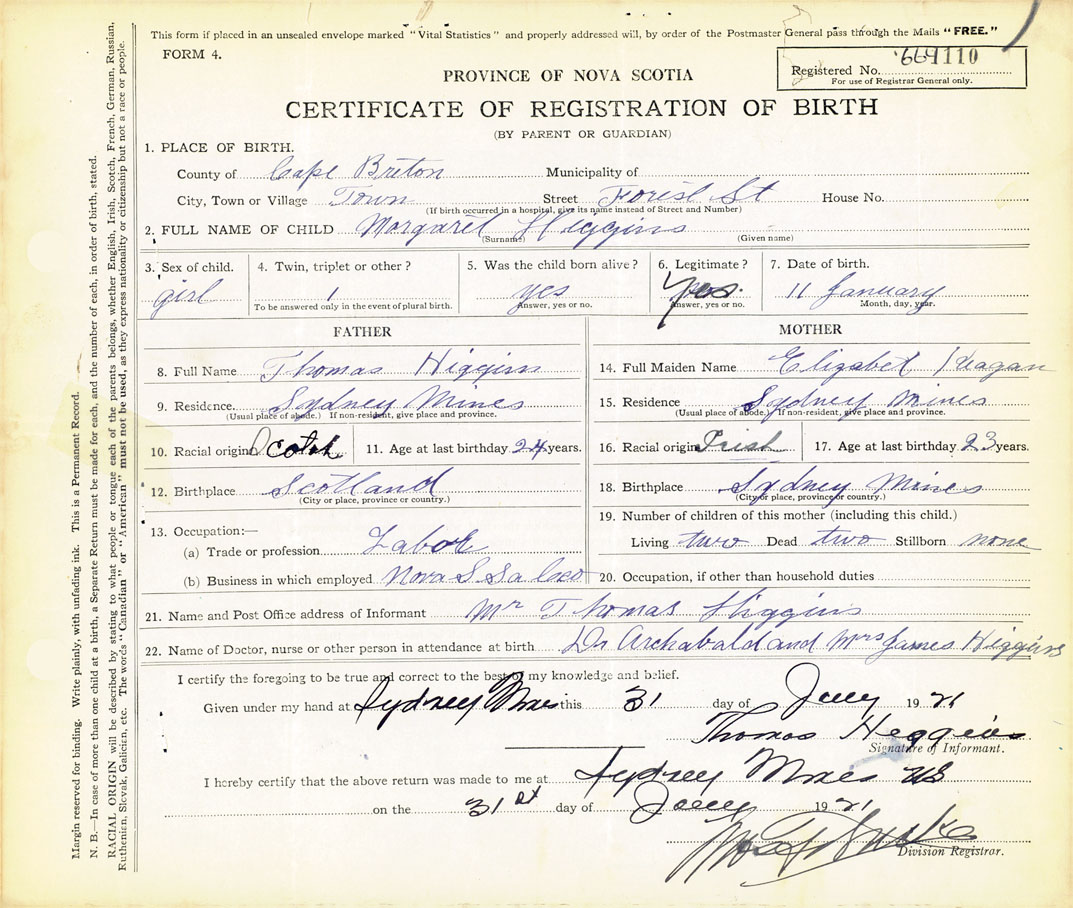 This form if placed in an unsealed envelope marked "Vital Statistics" and properly addressed will, by order of the Postmaster General pass through the Mails "FREE."
FORM 4.
Registered No. 669110
For use of Registrar General only.
PROVINCE OF NOVA SCOTIA
CERTIFICATE OF REGISTRATION OF BIRTH
(BY PARENT OR GUARDIAN)
1. PLACE OF BIRTH.
County of Cape Breton Municipality of
City, Town or Village Town Street Forest St House No.
(If birth occurred in a hospital, give its name instead of Street and Number)
2. FULL NAME OF CHILD Margaret Higgins
(Surname) (Given name)
3. Sex of child. 4. Twin, triplet or other? 5. Was the child born alive? 6. Legitimate? 7. Date of birth.
girl 1 yes yes. 11 January
To be answered only in the event of plural birth. Answer, yes or no. Answer, yes or no. Month, day, year.
FATHER MOTHER
8. Full Name Thomas Higgins 14. Full Maiden Name Elizabet
9. Residence. Sydney Mines 15. Residence Sydney Mines
(Usual place of abode.) If non-resident, give place and province. (Usual place of abode.) If non-resident, give place and province.
10. Racial origin Scotch 11. Age at last birthday 24 years. 16. Racial origin Irish 17. Age at last birthday 23 years.
12. Birthplace Scotland 18. Birthplace Sydney Mines
(City or place, province or country.) (City or place, province or country.)
13. Occupation:— 19. Number of children of this mother (including this child.)
(a) Trade or profession Labor Living two Dead two Stillborn none
(b) Business in which employed Nova S 20. Occupation, if other than household duties
21. Name and Post Office address of Informant Mr Thomas Higgins
22. Name of Doctor, nurse or other person in attendance at birth Dr Archabald and Mrs James Higgins
I certify the foregoing to be true and correct to the best of my knowledge and belief.
Given under my hand at Sydney Mines this 31 day of Jany 1921
Thomas Heggins
Signature of Informant.
I hereby certify that the above return was made to me at Sydney Mines
on the 31st day of Jany 1921
Division Registrar.
Margin reserved for binding. Write plainly, with unfading ink. This is a Permanent Record.
N. B.—In case of more than one child at a birth, a Separate Return must be made for each, and the number of each, in order of birth, stated.
RACIAL ORIGIN will be described by stating to what people or tongue each of the parents belongs, whether English, Irish, Scotch, French, German, Russian,
Ruthenien, Slovak, Galicien, etc. The words "Canadian" or "American" must not be used, as they express nationality or citizenship but not a race or people.